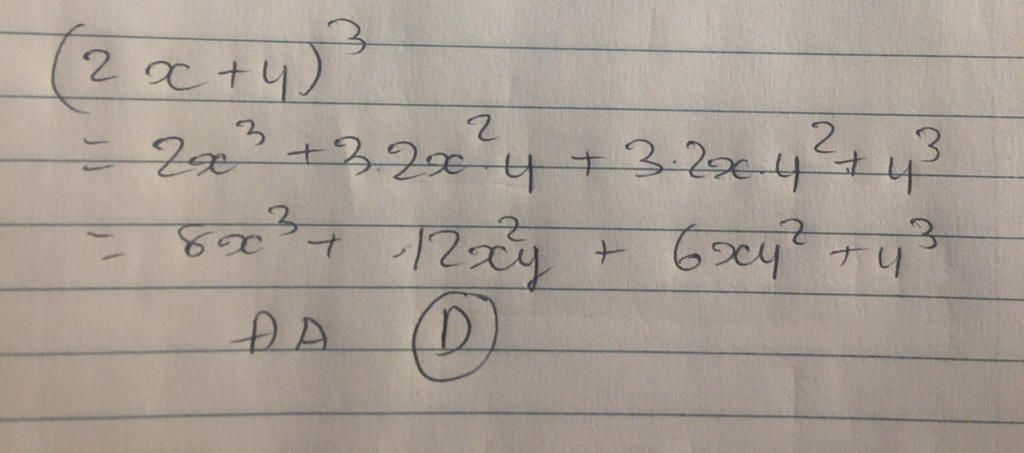 (2x+y)³
= 2x³ + 3.2x².y + 3.2x.y² + y³
= 8x³ + 12x²y + 6xy² + y³
ĐA D